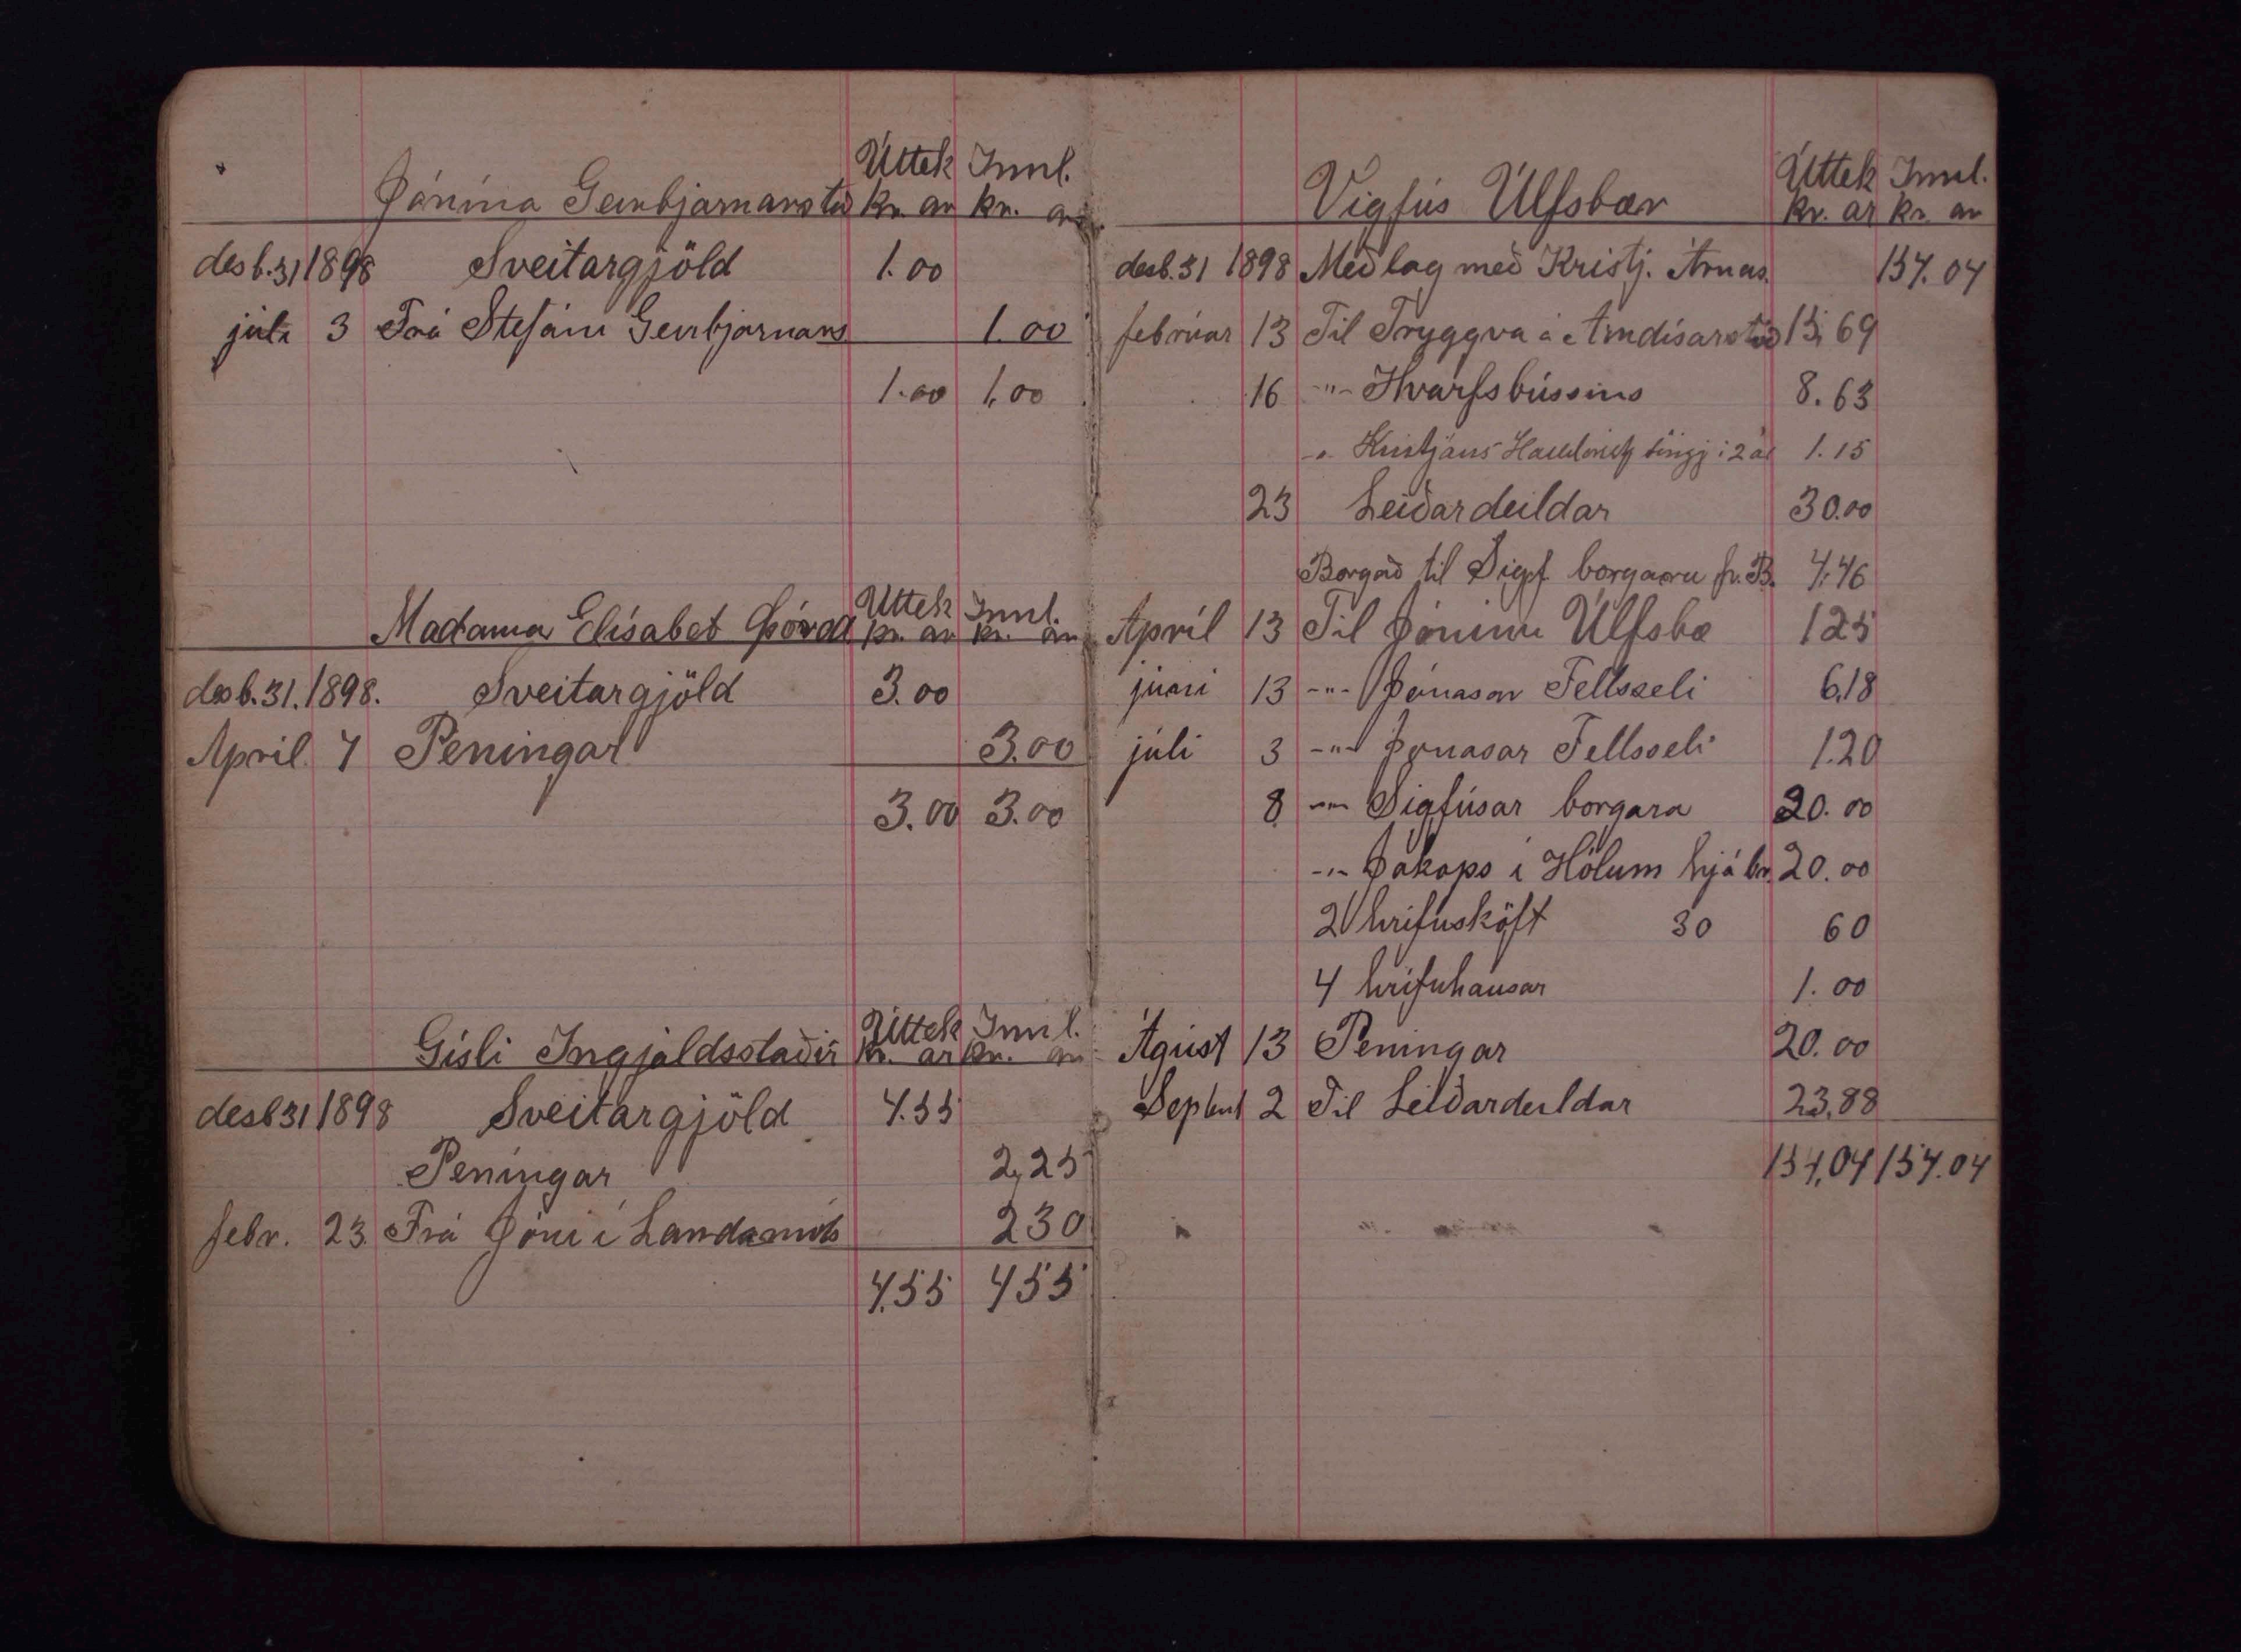 Úttek Innl.
Jónína Geirbjarnarstö kr. ar kr. ar
desb. 31 1898 Sveitargjöld 1.00
júlí 3 Frá Stefáni Geirbjarnars 1.00
1.00 1.00
Úttek Innl.
Madama Elísabet kr. ar kr. ar
desb. 31. 1898. Sveitargjöld 3.00
Apríl 7 Peningar 3.00
3.00 3.00
Úttek Innl.
Gísli Ingjaldsstaðir kr. ar kr. ar
desb 31 1898 Sveitargjöld 4.55
Peningar 2,25
febr. 23. Frá Jóni í Landamóts 230
4.55 455
Úttek Innl.
Vigfús Úlfsbær kr. ar kr. ar
desb. 31 1898 Meðlag með Kristj. Árnas. 154.04
febrúar 13 Til Tryggva á Arndísarstöð 15,69
16 -"- Hvarfsbússins 8.63
-"- Kristjáns í 2 ár 1.15
23 Leiðardeildar 30.00
Borgað til Sigf. borgara fr. B. 4.46
Apríl 13 Til Jónínu Úlfsbæ 125
júní 13 -"- Jónasar Fellsseli 6.18
júlí 3 -"- Jónasar Fellsseli 1.20
8 -"- Sigfúsar borgara 20.00
-"- Jakops í Hólum hjá br. 20.00
2 hrífusköft 30 60
4 hrífuhausar 1.00
Ágúst 13 Peningar 20.00
Septemb 2 Til Leiðardeildar 23,88
154,04 154.04